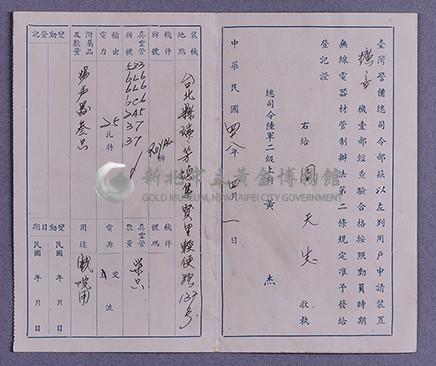 臺灣警備總司令部茲以左列用戶申請裝置
擴音機壹部經查驗合格按照動員時期
無線電器材管制辦法第二條規定准予發給
登記證
右給 周天生 收執
總司令陸軍二級上將黃 杰
中華民國四八年四月一日
裝機地點
台北縣瑞芳鎮
127號
機件牌號
ROYAL牌
真空管牌號
6L6
6L6
6C6
37
37
輸出電力
25瓦特
附屬品及數量
揚聲器叁只
變動登記
機件號碼
真空管數量
電源
交流
用途
戲院用
變動日期
民國 年 月 日
民國 年 月 日
新北市立黃金博物館
GOLD MUSEUM, NEW TAIPEI CITY GOVERNMENT